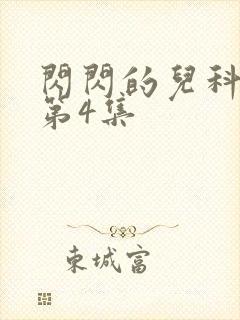 閃閃的兒科
第4集
東城富